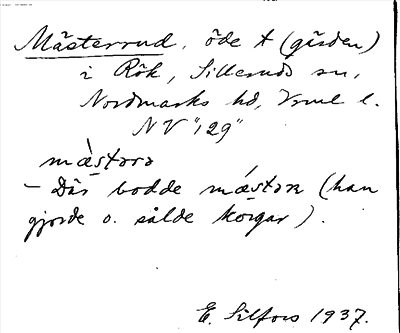 Mästerrud, öde t (gården)
i Rök, Silleruds sn,
Nordmarks hd, Vrml l.
NV "129"
mæ̀stərə
– Där bodde mǽstən (han
gjorde o. sålde korgar).
E. Silfors 1937.